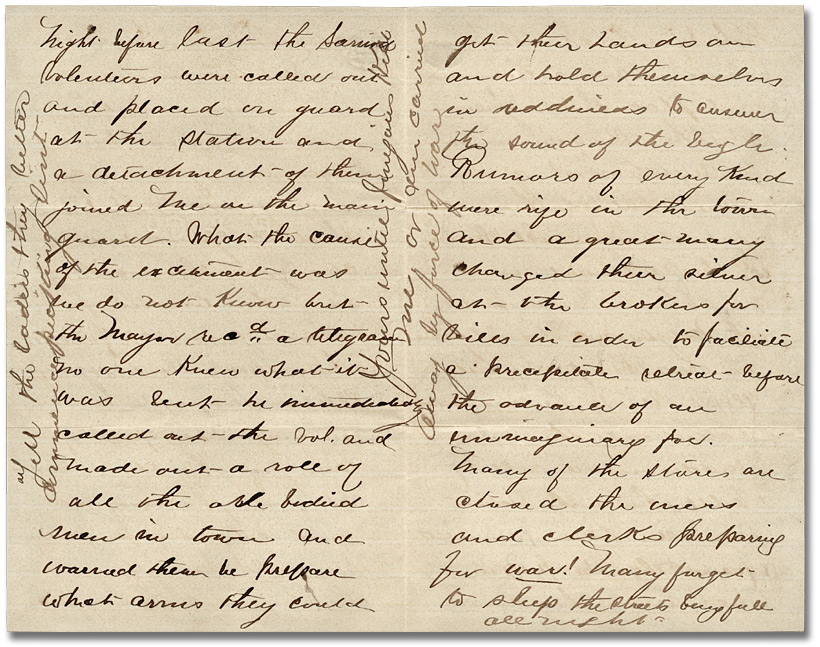 night before last the Sarnia
volenteers were called out
and placed on guard
at the station and
a detachment of them
joined me on the main
guard. What the cause
of the excitment was
we do not know but
the Mayor recd a telegram
no one knew what it
was but he immediately
called out the vol. and
made out a roll of
all the able bodied
men in town and
warned them be prepare
what arms they could
get their hands on
and hold themselves
in reddiness to answer
the sound of the bugle.
Rumors of every kind
were rife in the town
and a great many
changed their silver
at the brokers for
bills in order to faciliate
a precipitate retreat before
the advance of an
immaginary foe.
Many of the stores are
closed the owers
and clerks preparing
for war! Many forget
to sleep the streets being full
all night.
Yours until
True or am carried
away by force of war
Tell the ladies they better
commence picking lint